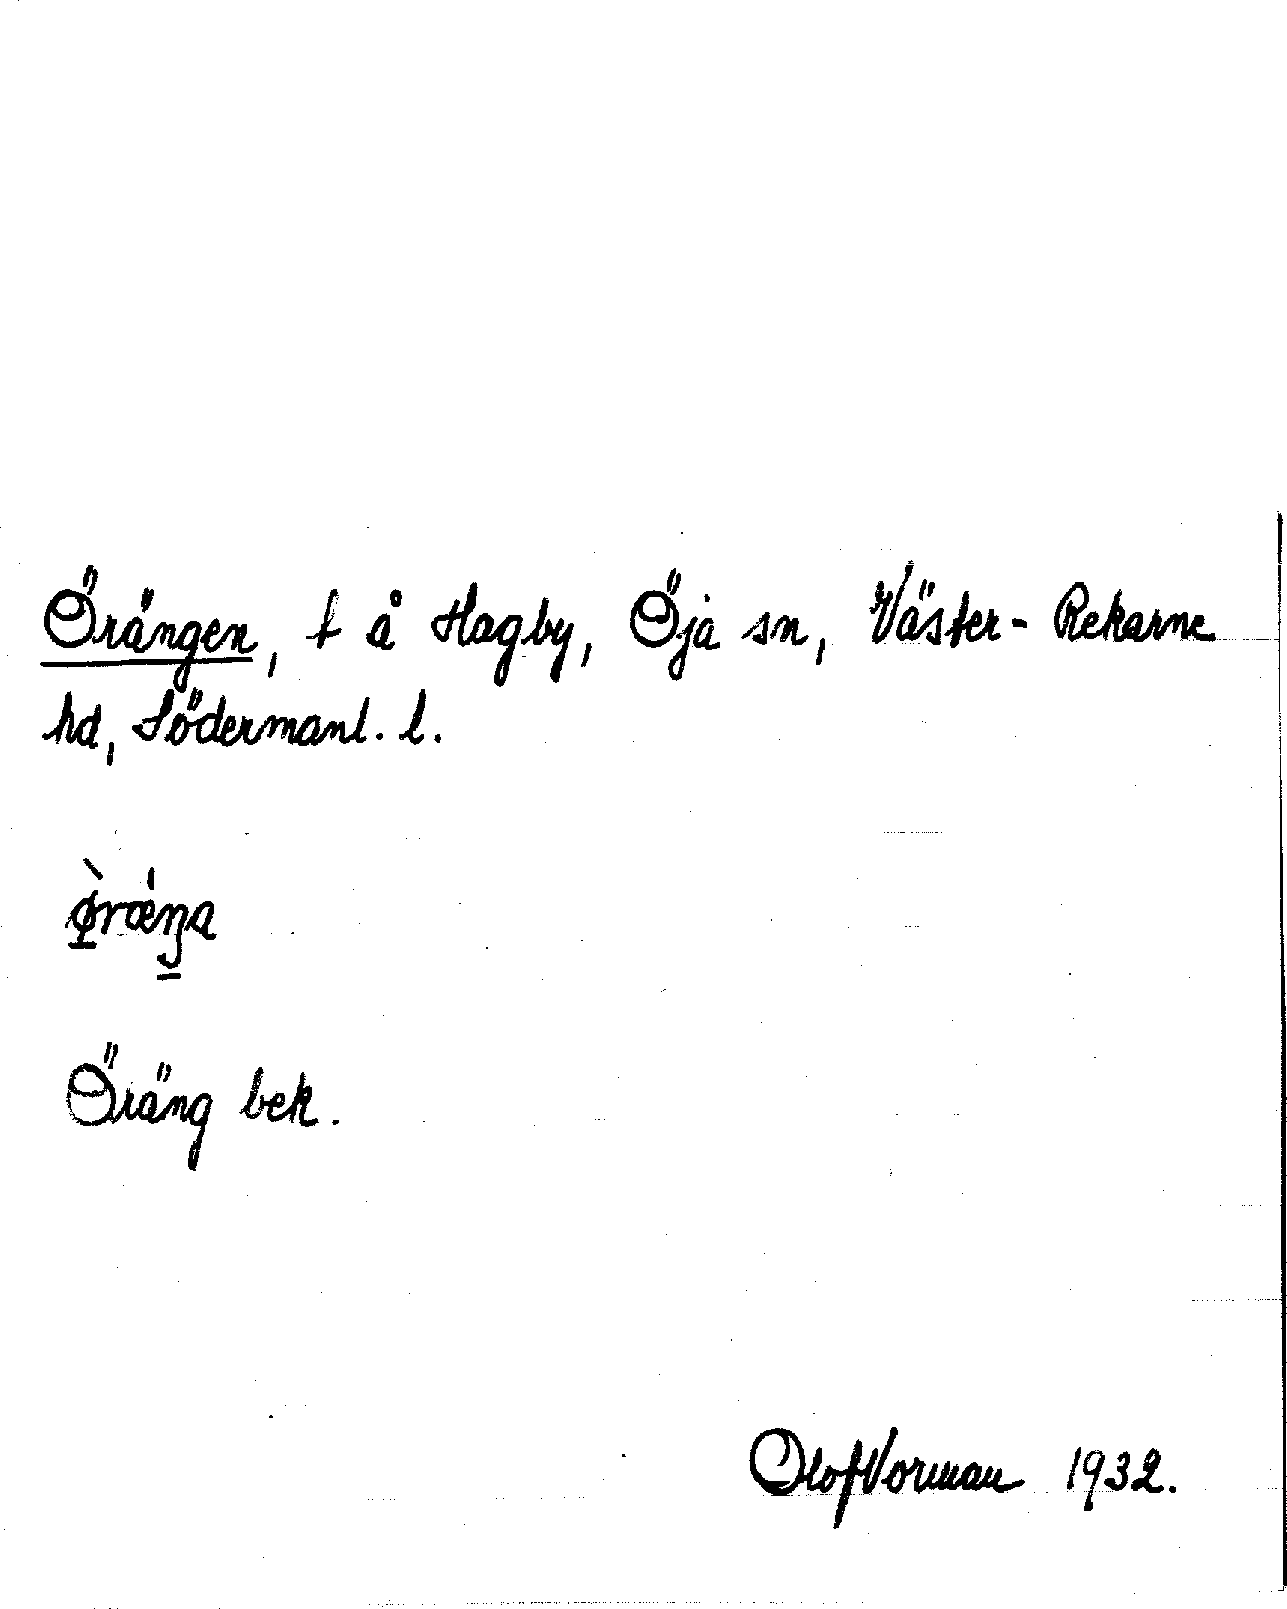 Örängen, t å Hagby, Öja sn, Väster-Rekarne
hd, Södermanl. l.
Ø̀ræŋa
Öräng bek.
Olof Norman 1932.